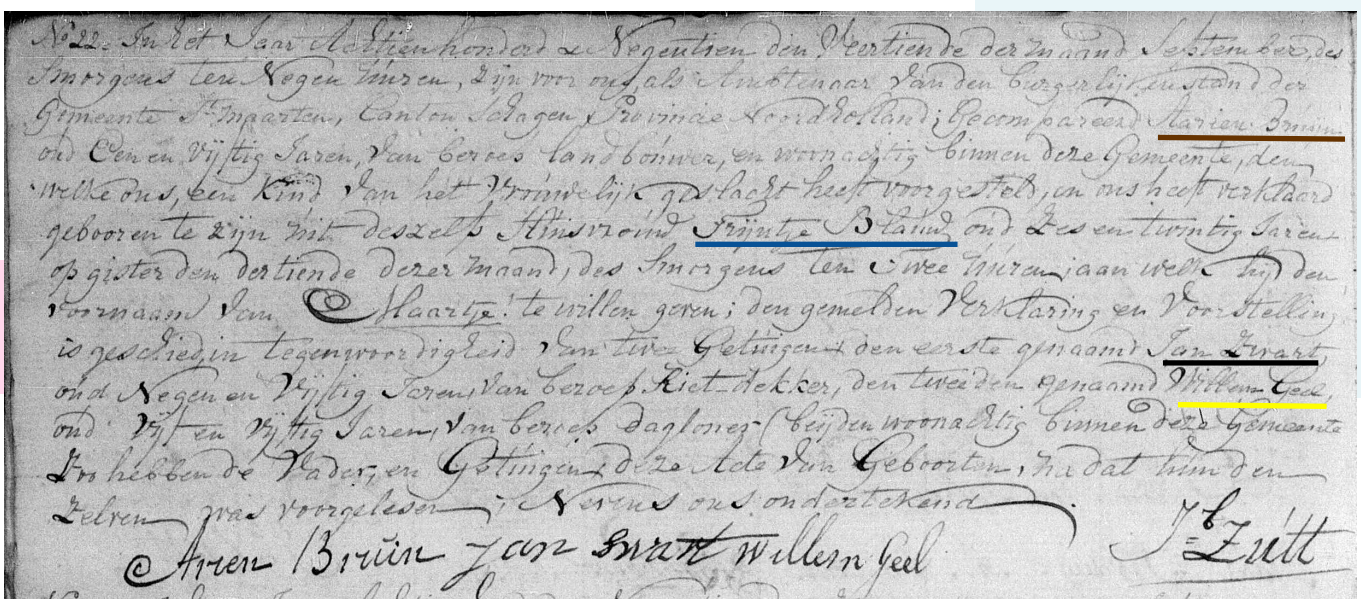 No 22. In het Jaar Achtien honderd & Negentien den Veertiende der maand September, des
Smorgens ten Negen Uúren, zijn voor ons, als Ambtenaar van den burgerlijken stand der
Gemeente St. maarten, Canton Schagen, Provincie Noordholland; Gecompareerd Aarien Bruijn
oud Een en Vijftig Jaren, van beroep landboúwer, en woonachtig binnen deze Gemeente, den
welke ons, een Kind van het Vroúwelijk geslacht heeft voorgesteld, en ons heeft verklaard
gebooren te zijn úit deszelfs Húisvroúw Trijntje Blaúw oúd Zes en twintig Jaren
op gister den dertiende dezer maand, des Smorgens ten twee úúren, aan welk hij den
voornaam van Maartje! te willen geven; den gemelden Verklaring en Voorstelling
is geschied, in tegenwoordigheid van twee Getúigen den eerste genaamd Jan Zwart,
oúd Negen en Vijftig Jaren, van beroep Riet-dekker, den tweeden genaamd Willem Geel,
oúd Vijf en Vijftig Jaren, van beroep dagloner (beijden woonachtig binnen deze Gemeente
Zoo hebben de Vader, en Getúigen, deze Acte van Geboorten, na dat hún den
Zelven was voorgelesen, Nevens ons ondertekend
Arien Brúin Jan swart willem Geel Jb Zútt